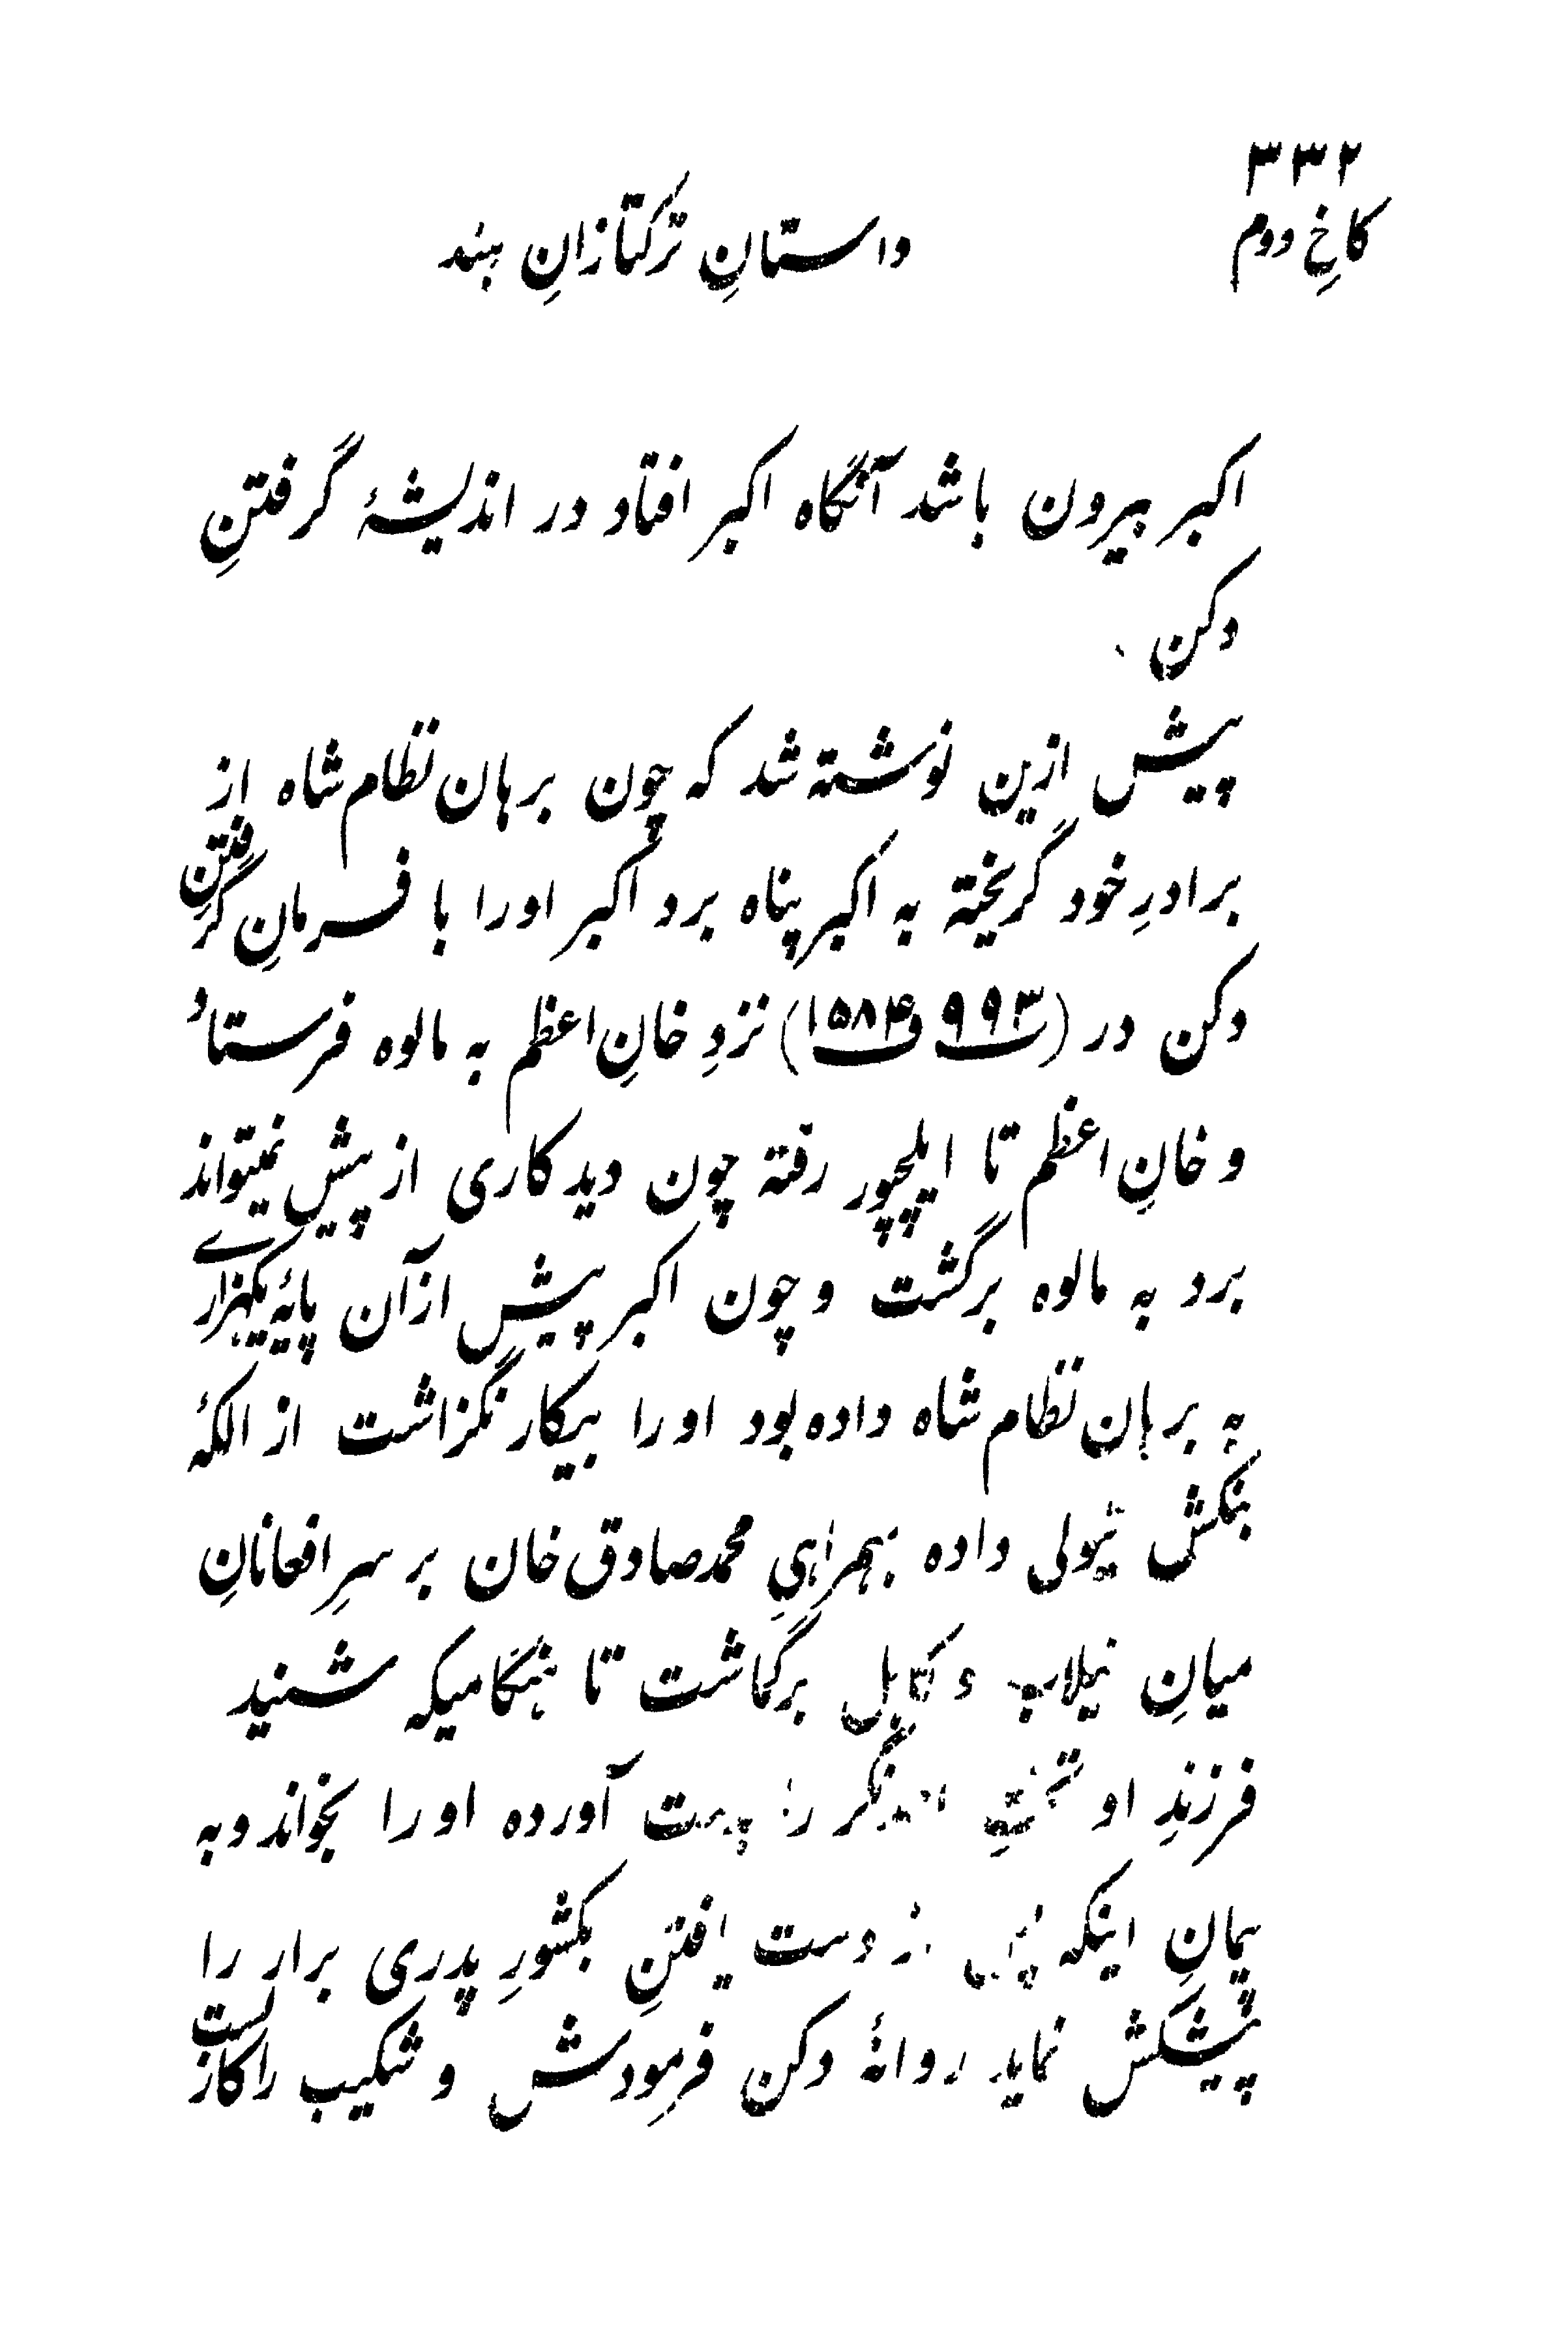 ۳۳۲
کاخِ دوم
داستانِ ترکتازانِ هند
اکبر بیرون باشد آنگاه اکبر افتاد در اندیشهٔ گرفتنِ
دکن
پیش ازین نوشته شد که چون برهان نظام شاه از
برادرِ خود گریخته به اکبر پناه برد اکبر اورا با فرمانِ گرفتنِ
دکن در (۹۹۳ ۱۵۸۴) نزدِ خانِ اعظم به مالوه فرستاد
و خانِ اعظم تا ایلچپور رفته چون دید کاری از پیش نمیتواند
برد به مالوه برگشت و چون اکبر پیش ازآن پایهٔ یکهزاری
به برهان نظام شاه داده بود اورا بیکار نگزاشت از الکهٔ
بنکش تیولی داده بهمراهیِ محمد صادق خان بر سرِ افغانانِ
میانِ نیلاب و کابل برگماشت تا هنگامیکه شنید
فرزندِ او تختِ احمدنگر را بدست آورده اورا بخواند و به
پیمانِ اینکه پس از دست یافتنِ بکشورِ پدری برار را
پیشکش نماید روانهٔ دکن فرمودش و شکیب را کار